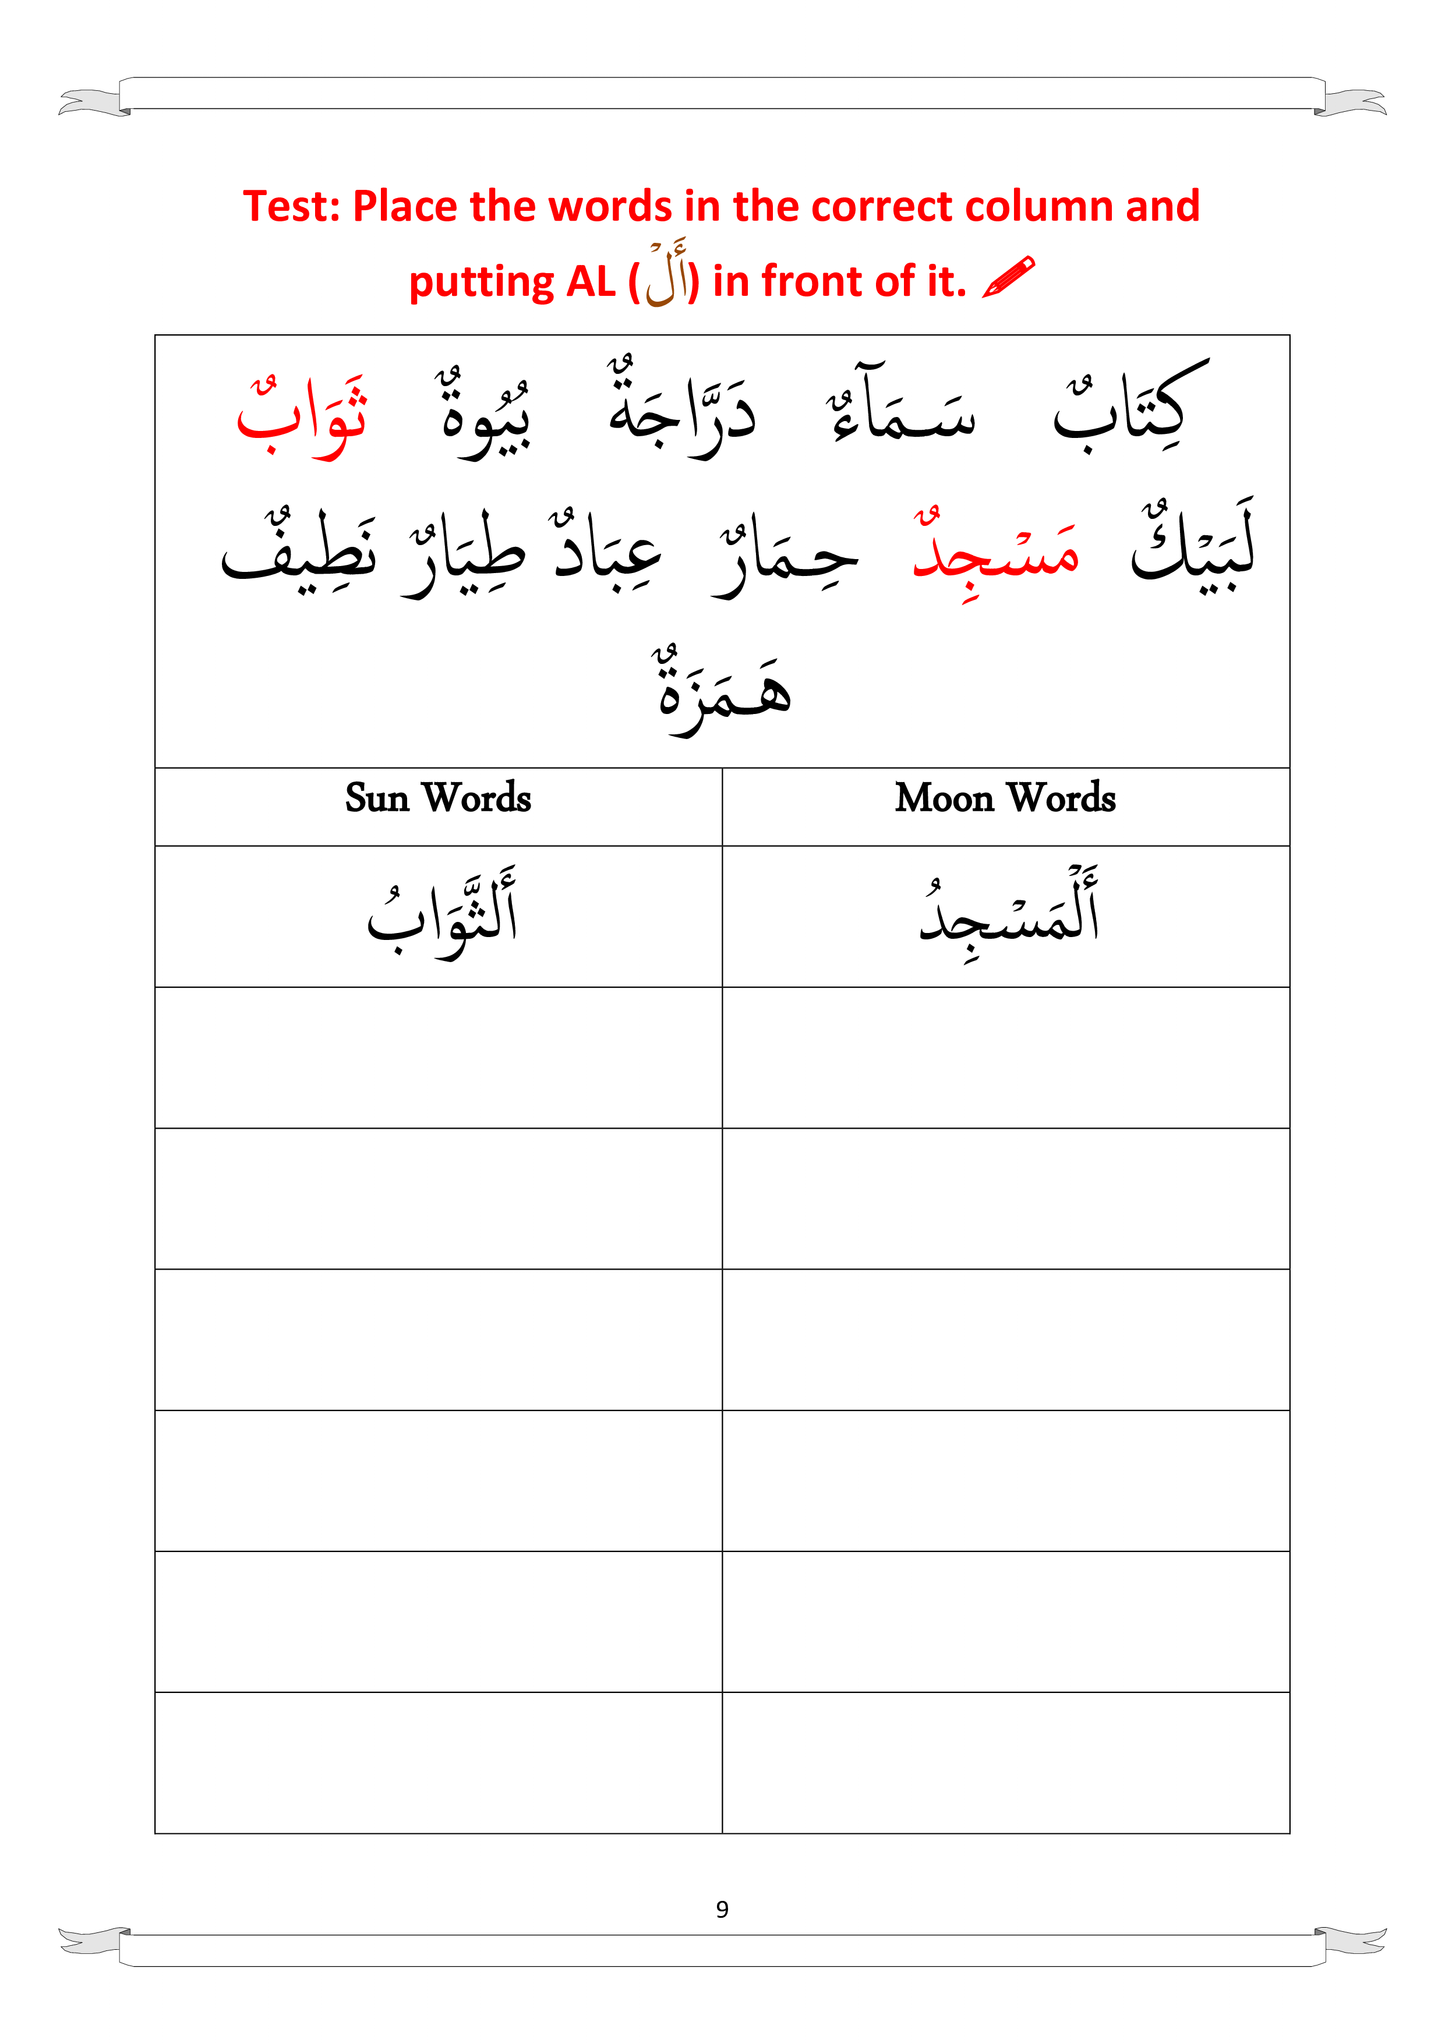 Test: Place the words in the correct column and
putting AL (أَلْ) in front of it.
كِتَابٌ سَمَآءٌ دَرَّاجَةٌ بُيُوةٌ ثَوَابٌ
لَبَيْكٌ مَسْجِدٌ حِمَارٌ عِبَادٌ طِيَارٌ نَطِيفٌ
هَمَزَةٌ
Sun Words Moon Words
أَلثَّوَابُ أَلْمَسْجِدُ
9